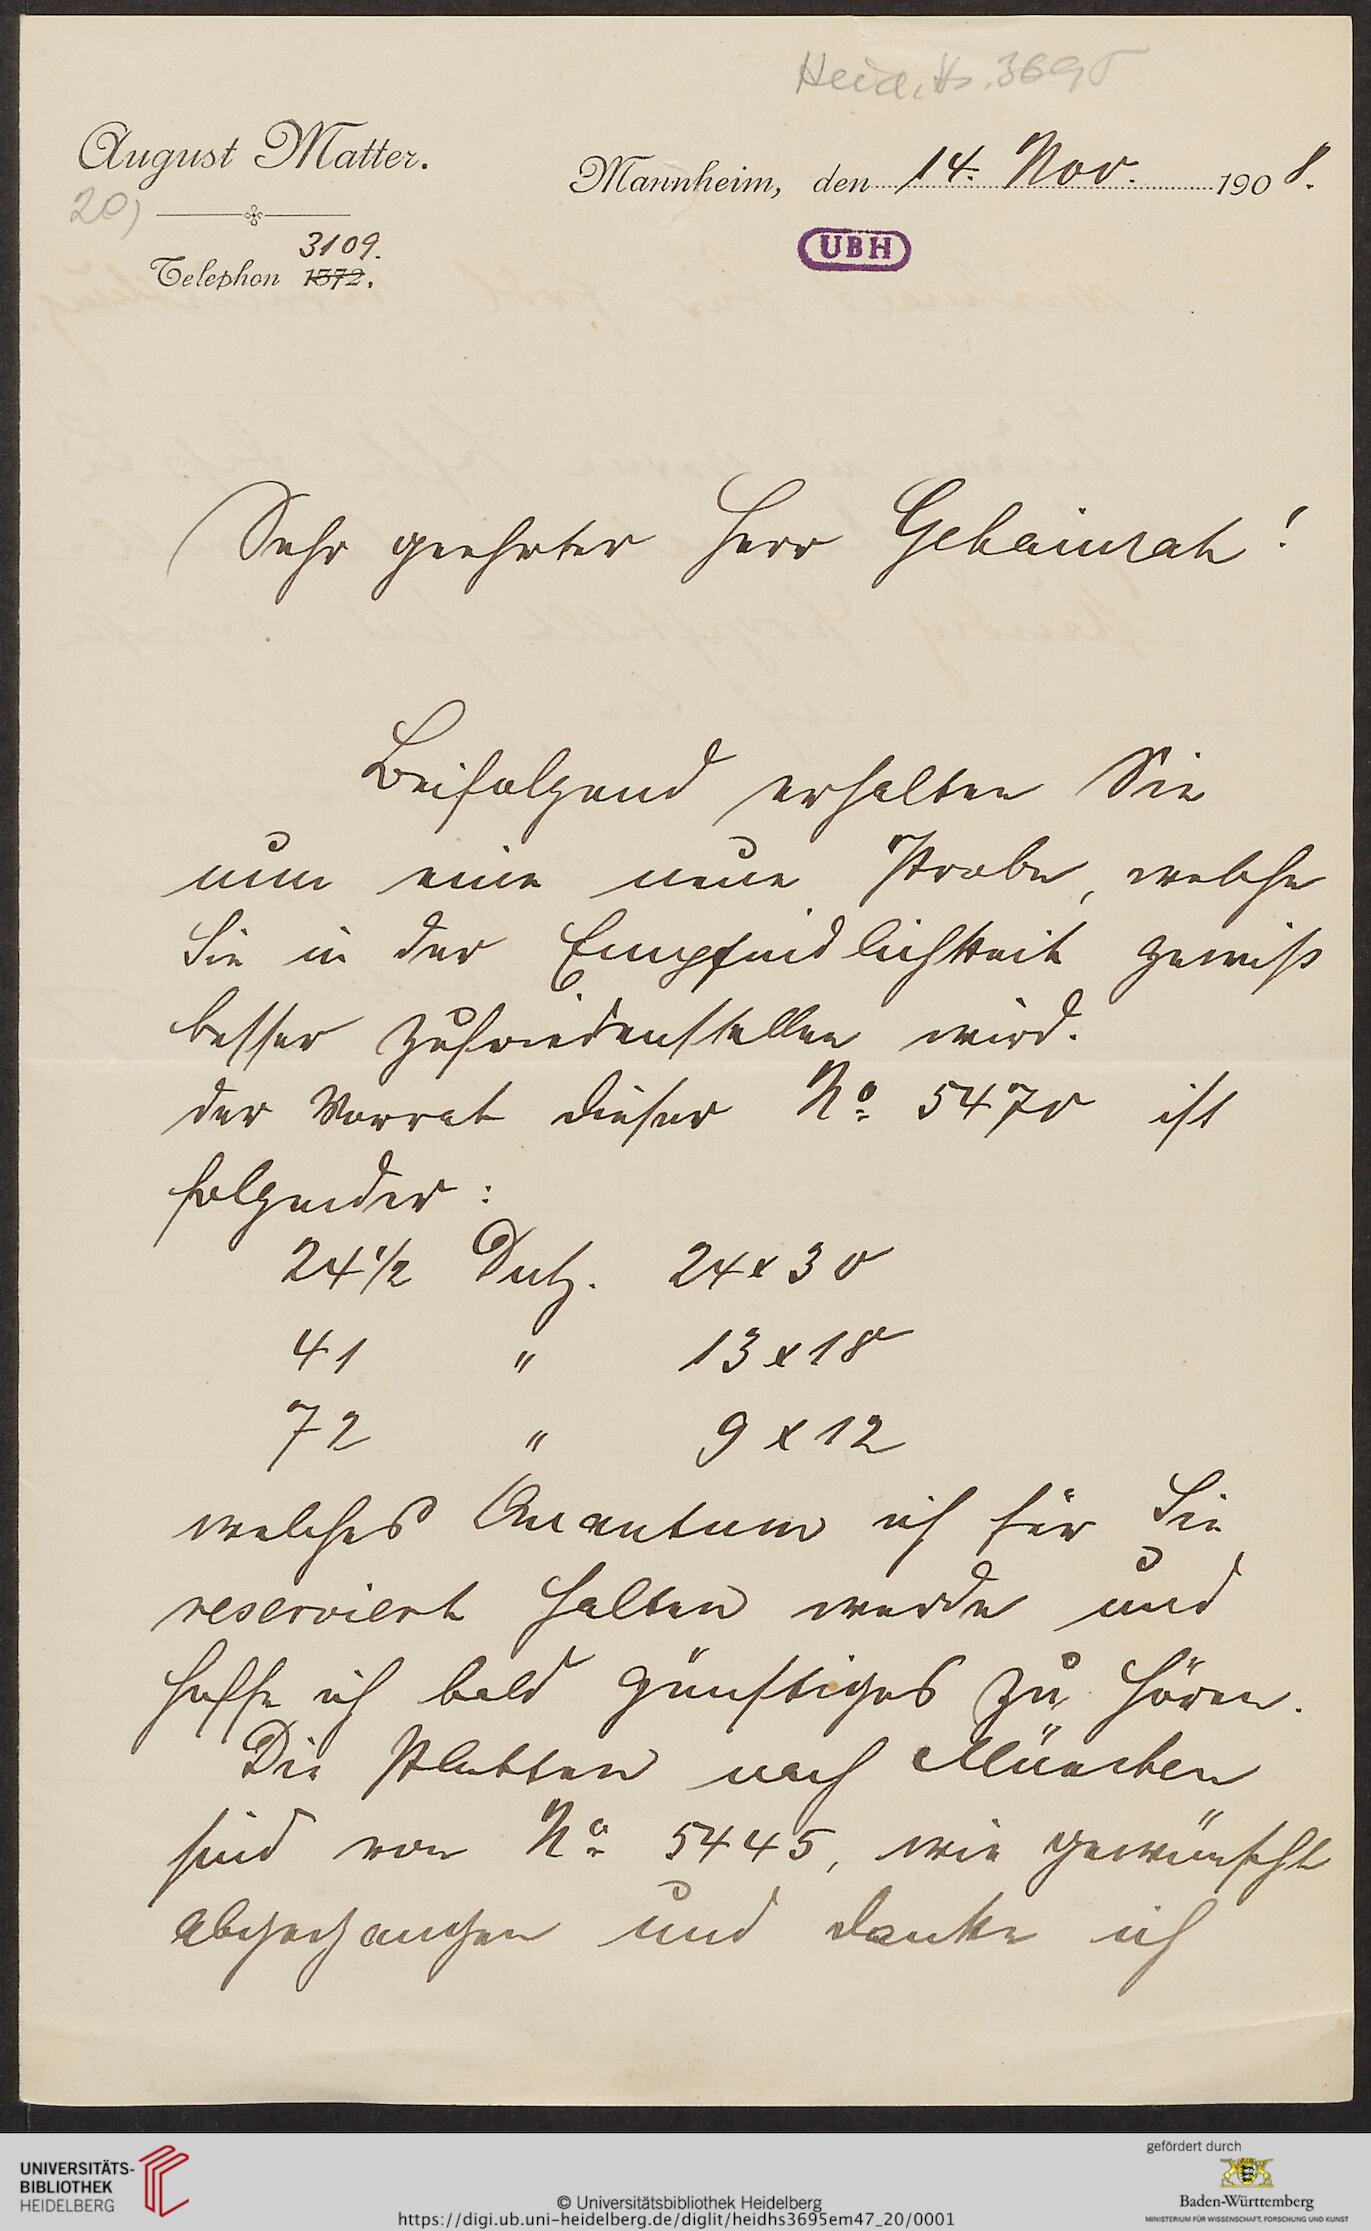 Heid. Hs. 3695
August Matter.
Mannheim, den 14. Nov. 1908.
20)
UBH
3109.
Telephon 1372.
Sehr geehrter Herr Geheimrath!
Beifolgend erhalten Sie
nun eine neue Probe, welche
Sie in der Empfindlichkeit gewiß
besser zufriedenstellen wird.
der Vorrat dieser No 5470 ist
folgender:
24 1/2 Dutz. 24x30
41 " 13x18
72 " 9x12
welches Quantum ich für Sie
reserviert halten werde und
hoffe ich bald günstiges zu hören.
Die Platten nach München
sind von No 5445, wie gewünscht
abgegangen und danke ich
UNIVERSITÄTS-
BIBLIOTHEK
HEIDELBERG
© Universitätsbibliothek Heidelberg
https://digi.ub.uni-heidelberg.de/diglit/heidhs3695em47_20/0001
gefördert durch
Baden-Württemberg
MINISTERIUM FÜR WISSENSCHAFT, FORSCHUNG UND KUNST